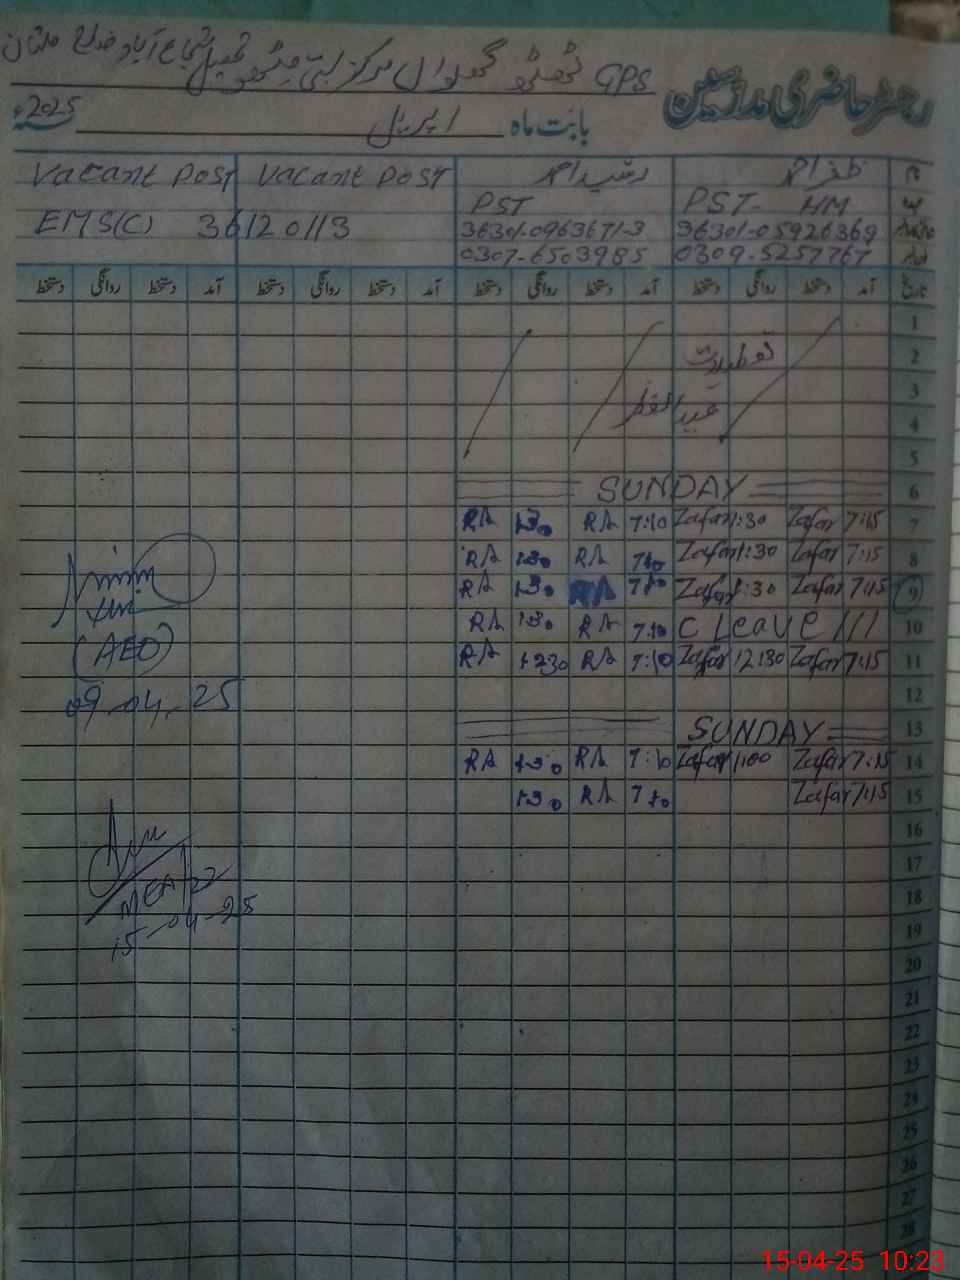 رجسٹر حاضری مدرسین GPS ٹھٹھو گھلواں مرکز بستی مٹھو تحصیل شجاع آباد ضلع ملتان
بابت ماہ اپریل 2025ء
ظفر احمد رشید احمد Vacant Post Vacant Post
PST- HM PST
36301-05926369 36301-0963671-3 EMS(C) 36120113
0309-5257767 0307-6503985
تاریخ آمد دستخط روانگی دستخط آمد دستخط روانگی دستخط آمد دستخط روانگی دستخط آمد دستخط روانگی دستخط
1
2 تعطیلات
3
4 عید الفطر
5
6 SUNDAY
7 7:15 Zafar 1:30 Zafar 7:10 RA 1:30 RA
8 7:15 Zafar 1:30 Zafar 7:10 RA 1:30 RA
9 7:15 Zafar 1:30 Zafar 7:10 RA 1:30 RA
10 C Leave /// 7:10 RA 1:30 RA
11 7:15 Zafar 12:30 Zafar 7:10 RA 1230 RA
12
13 SUNDAY
14 7:15 Zafar 1:00 Zafar 7:10 RA 1:30 RA
15 7:15 Zafar 7:10 RA 1:30
16
17
18
19
20
21
22
23
24
25
26
27
28
(AEO)
09-04-25
MEA
15-04-25
15-04-25 10:23